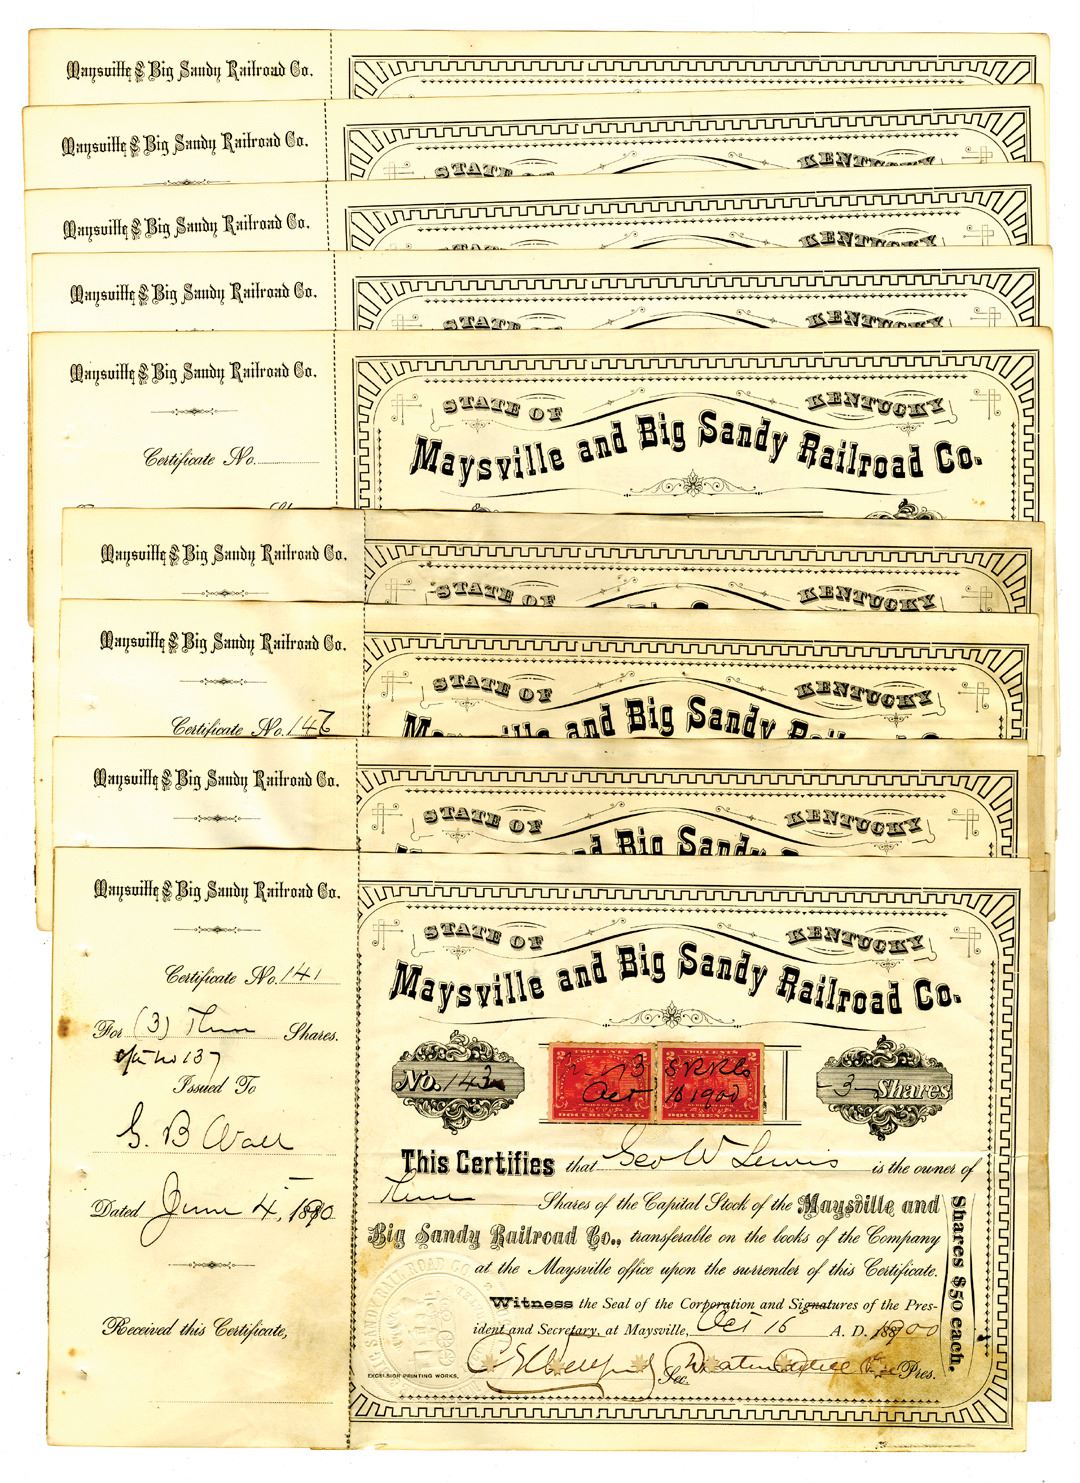 Maysville & Big Sandy Railroad Co.
Maysville & Big Sandy Railroad Co.
STATE OF KENTUCKY
Maysville & Big Sandy Railroad Co.
STATE KENTUCKY
Maysville & Big Sandy Railroad Co.
STATE OF KENTUCKY
Maysville & Big Sandy Railroad Co.
Certificate No.
STATE OF KENTUCKY
Maysville and Big Sandy Railroad Co.
Maysville & Big Sandy Railroad Co.
STATE OF KENTUCKY
Maysville & Big Sandy Railroad Co.
Certificate No. 146
STATE OF KENTUCKY
Maysville and Big Sandy
Maysville & Big Sandy Railroad Co.
STATE OF KENTUCKY
and Big Sandy
Maysville & Big Sandy Railroad Co.
Certificate No. 141
For (3) Three Shares.
137
Issued To
G. B Wall
Dated June 4, 1890
Received this Certificate,
STATE OF KENTUCKY
Maysville and Big Sandy Railroad Co.
No. 143
TWO CENTS TWO CENTS
Oct 16 1900
DOCUMENTARY DOCUMENTARY
3 Shares
This Certifies that Geo W Lewis is the owner of
Three Shares of the Capital Stock of the Maysville and
Big Sandy Railroad Co., transferable on the books of the Company
at the Maysville office upon the surrender of this Certificate.
Witness the Seal of the Corporation and Signatures of the Pres-
ident and Secretary, at Maysville, Oct 16 A. D. 1900
Sec. Pres.
EXCELSIOR PRINTING WORKS,
Shares $50 each.